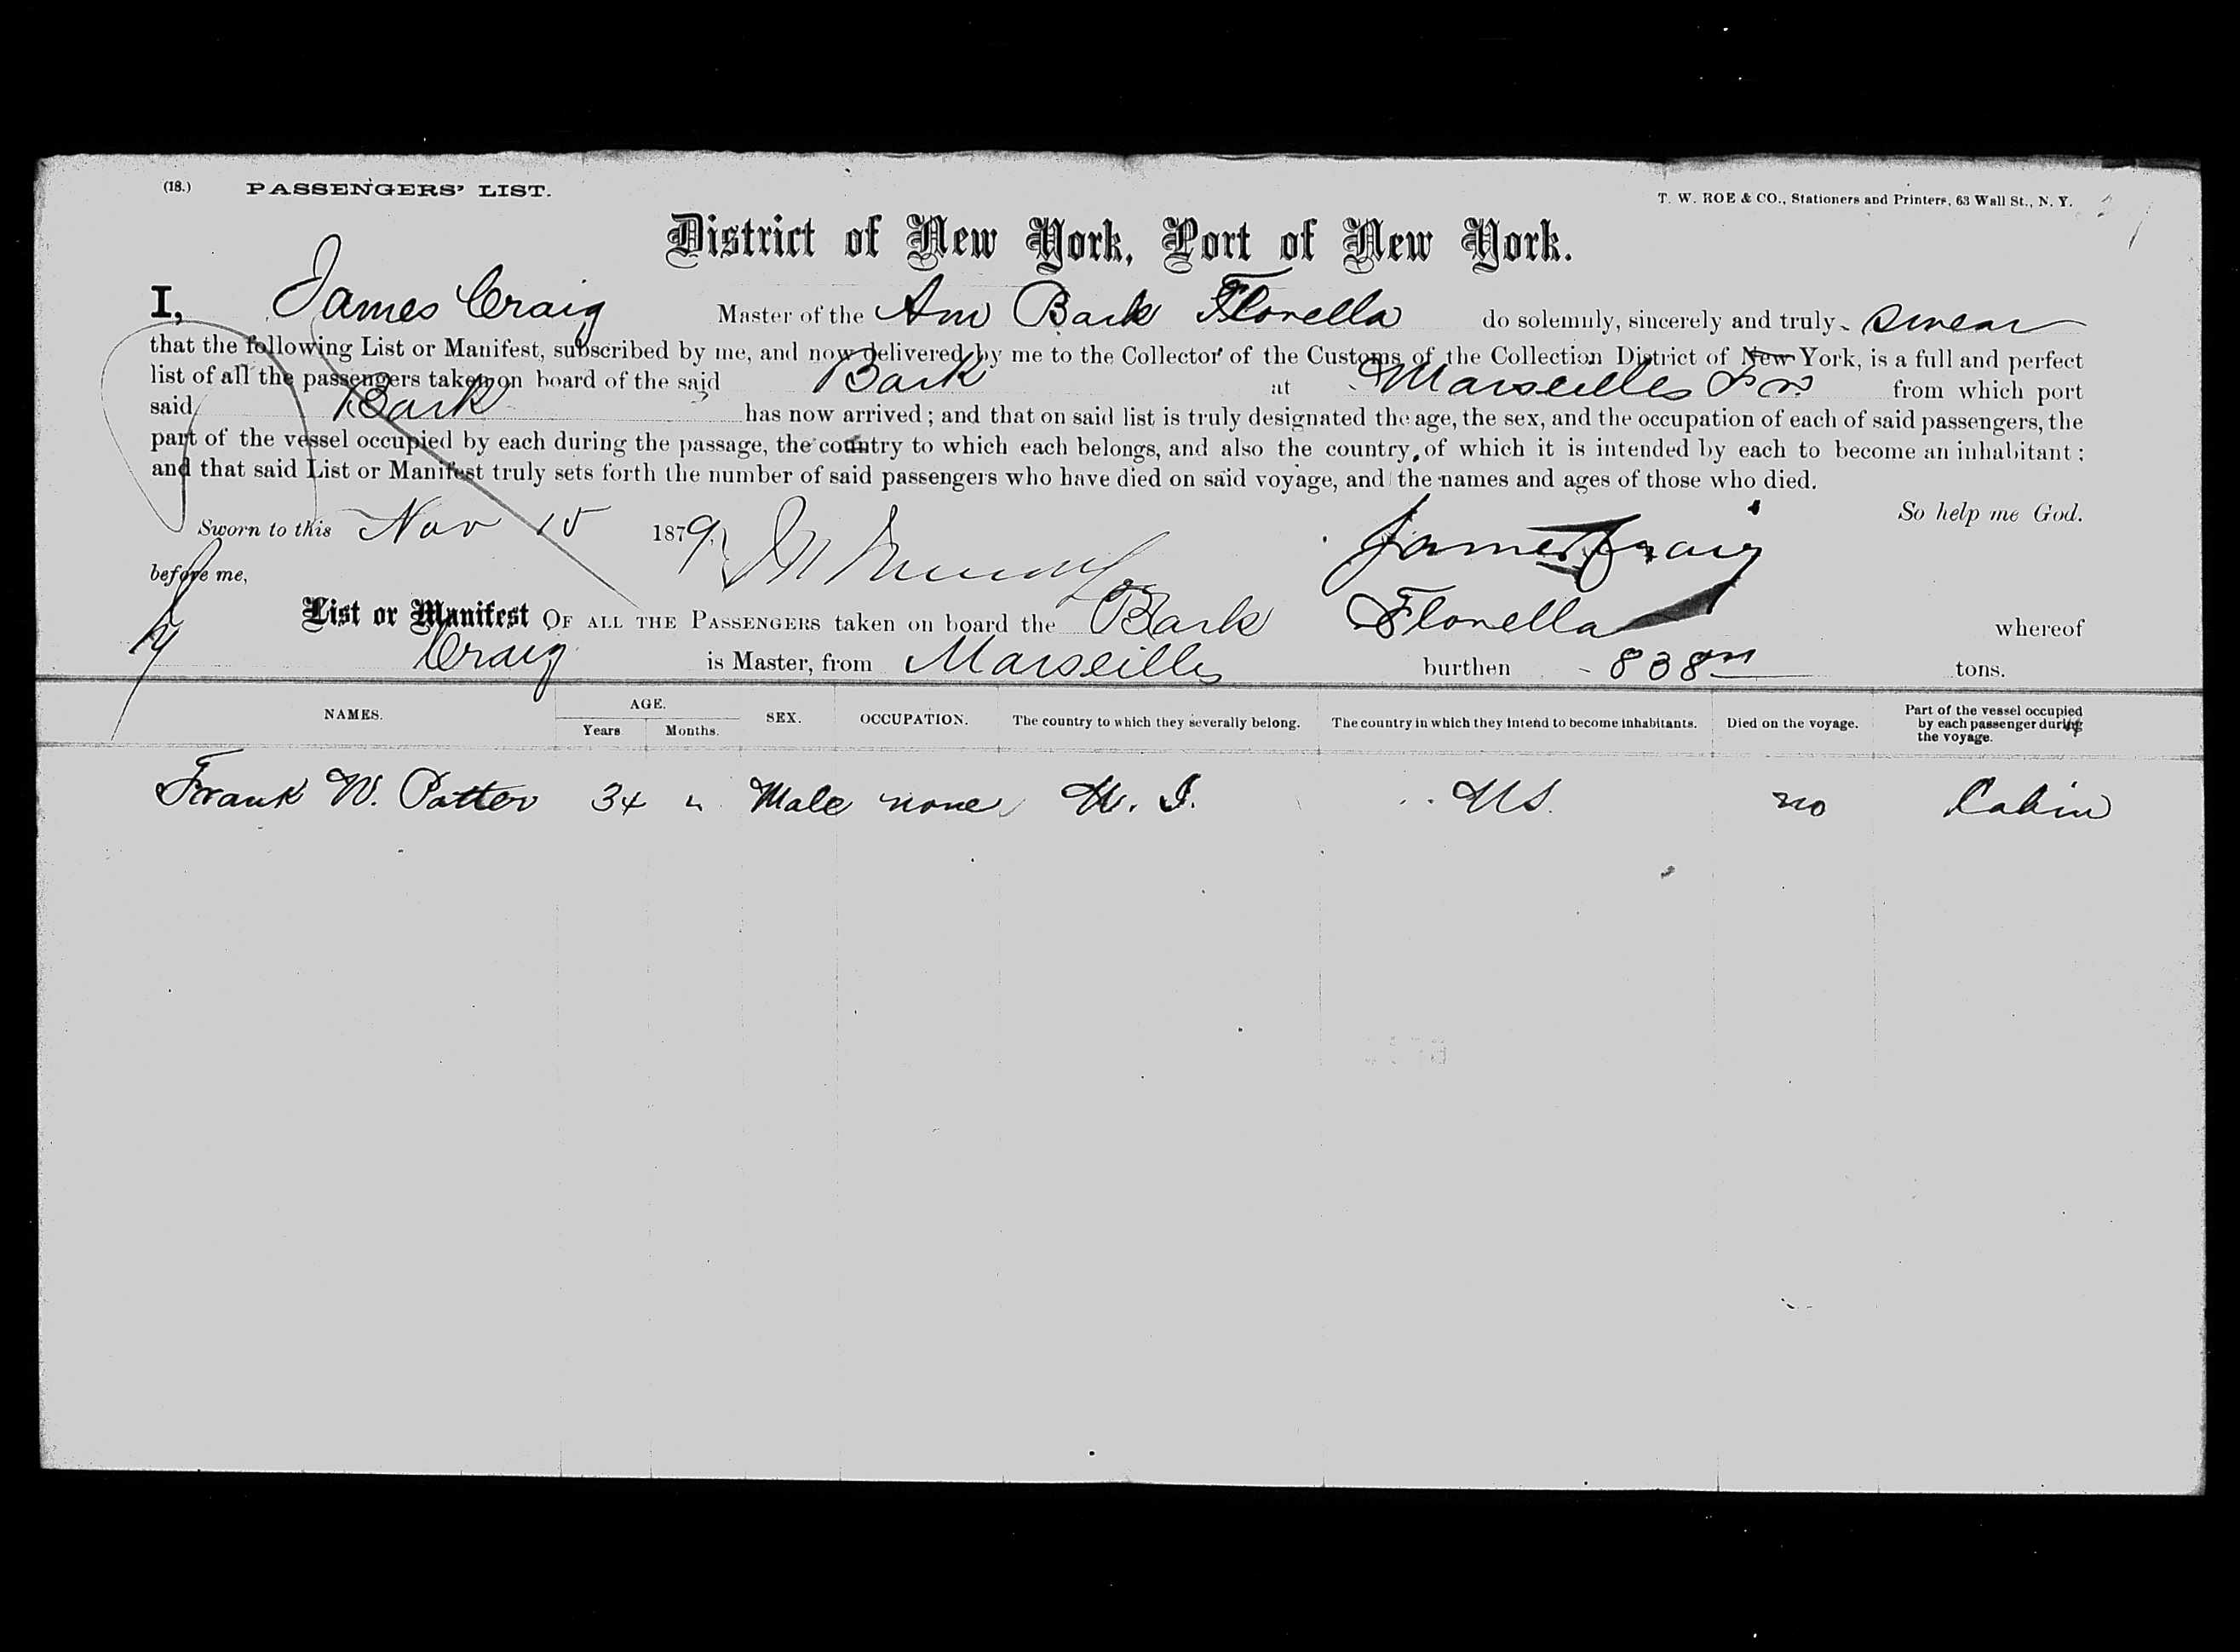 (18.) PASSENGERS' LIST.
T. W. ROE & CO., Stationers and Printers, 63 Wall St., N. Y.
District of New York, Port of New York.
I, James Craig Master of the Am Bark Florella do solemnly, sincerely and truly swear
that the following List or Manifest, subscribed by me, and now delivered by me to the Collector of the Customs of the Collection District of New York, is a full and perfect
list of all the passengers taken on board of the said Bark at Marseilles from which port
said Bark has now arrived; and that on said list is truly designated the age, the sex, and the occupation of each of said passengers, the
part of the vessel occupied by each during the passage, the country to which each belongs, and also the country of which it is intended by each to become an inhabitant;
and that said List or Manifest truly sets forth the number of said passengers who have died on said voyage, and the names and ages of those who died.
So help me God.
Sworn to this Nov 15 1879, James Craig
before me,
List or Manifest OF ALL THE PASSENGERS taken on board the Bark Florella whereof
Craig is Master, from Marseilles burthen 838 tons.
NAMES. AGE. Years Months. SEX. OCCUPATION. The country to which they severally belong. The country in which they intend to become inhabitants. Died on the voyage. Part of the vessel occupied by each passenger during the voyage.
Frank W. Patter 34 " Male none U.S. no Cabin